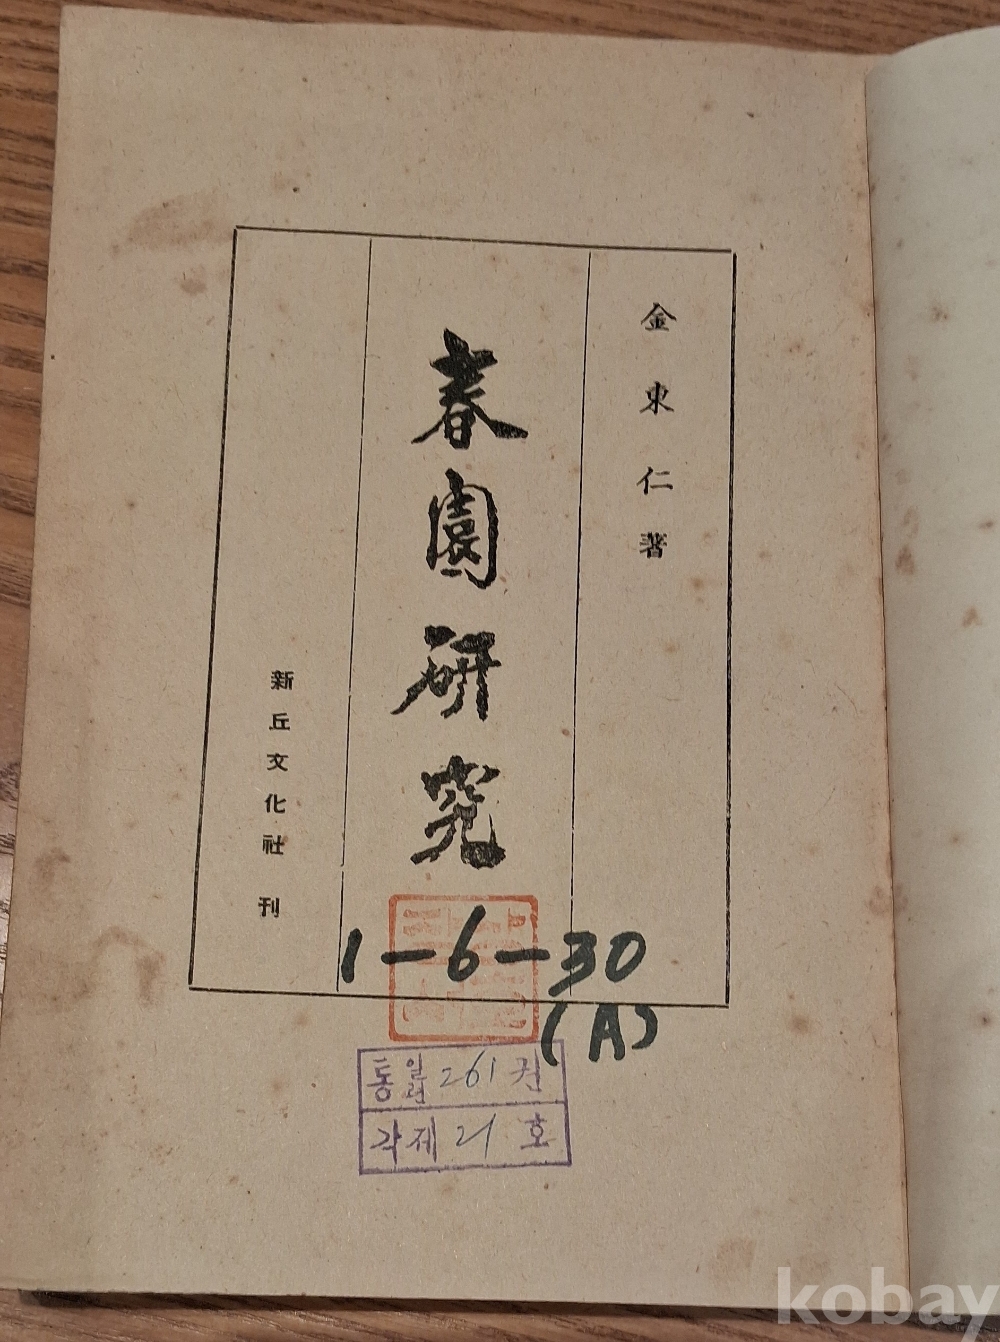 金東仁著
春園研究
新丘文化社 刊
1-6-30
(A)
통 261 권
각제 21 호
kobay